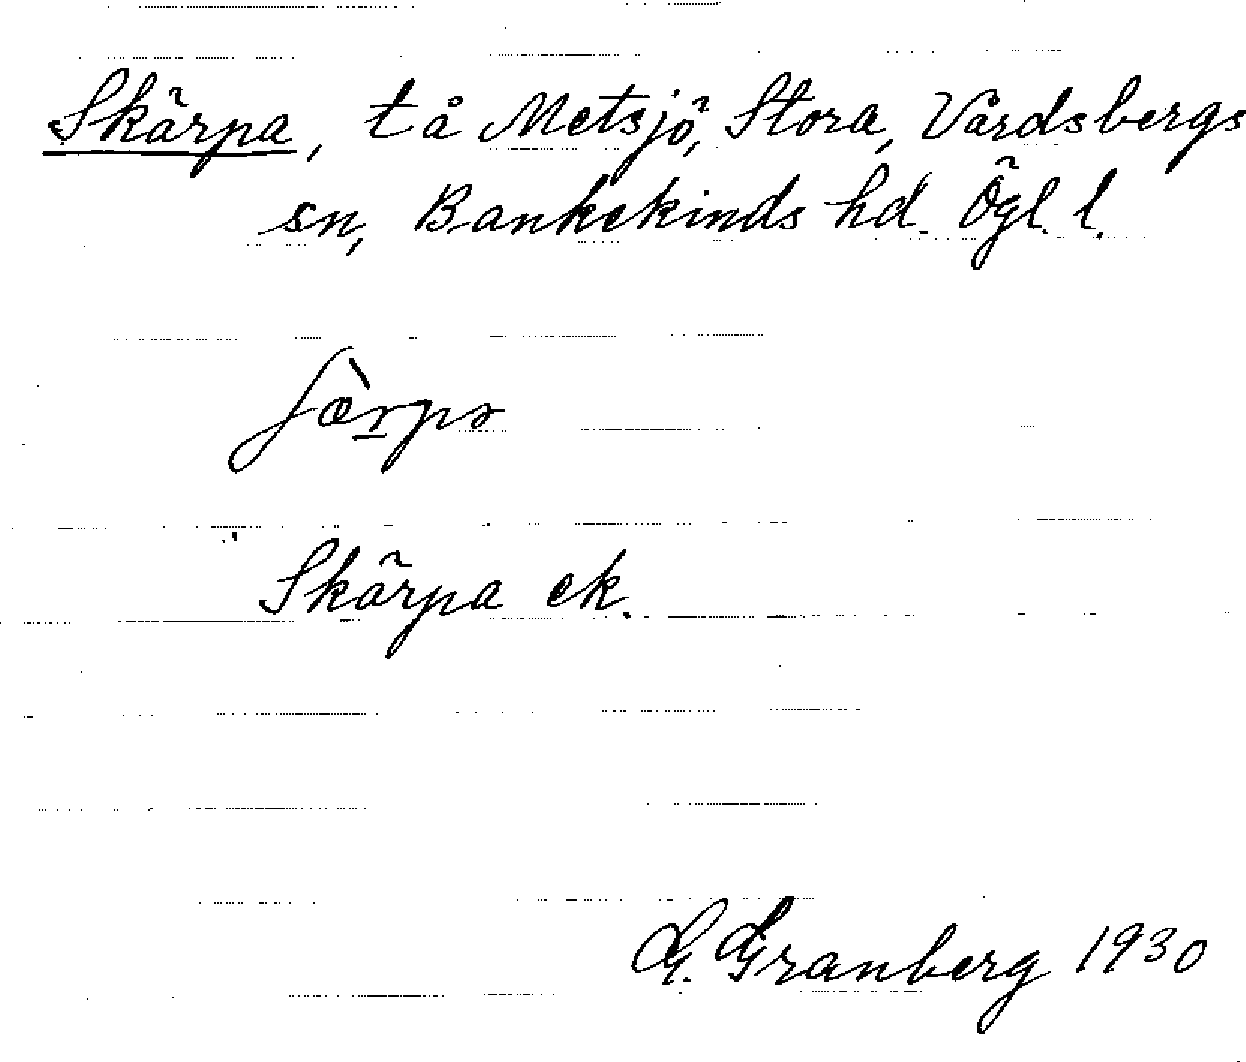 Skärpa, t å Metsjö, Stora, Vårdsbergs
sn, Bankekinds hd. Ögl. l.
Skärpa ek.
G. Granberg 1930